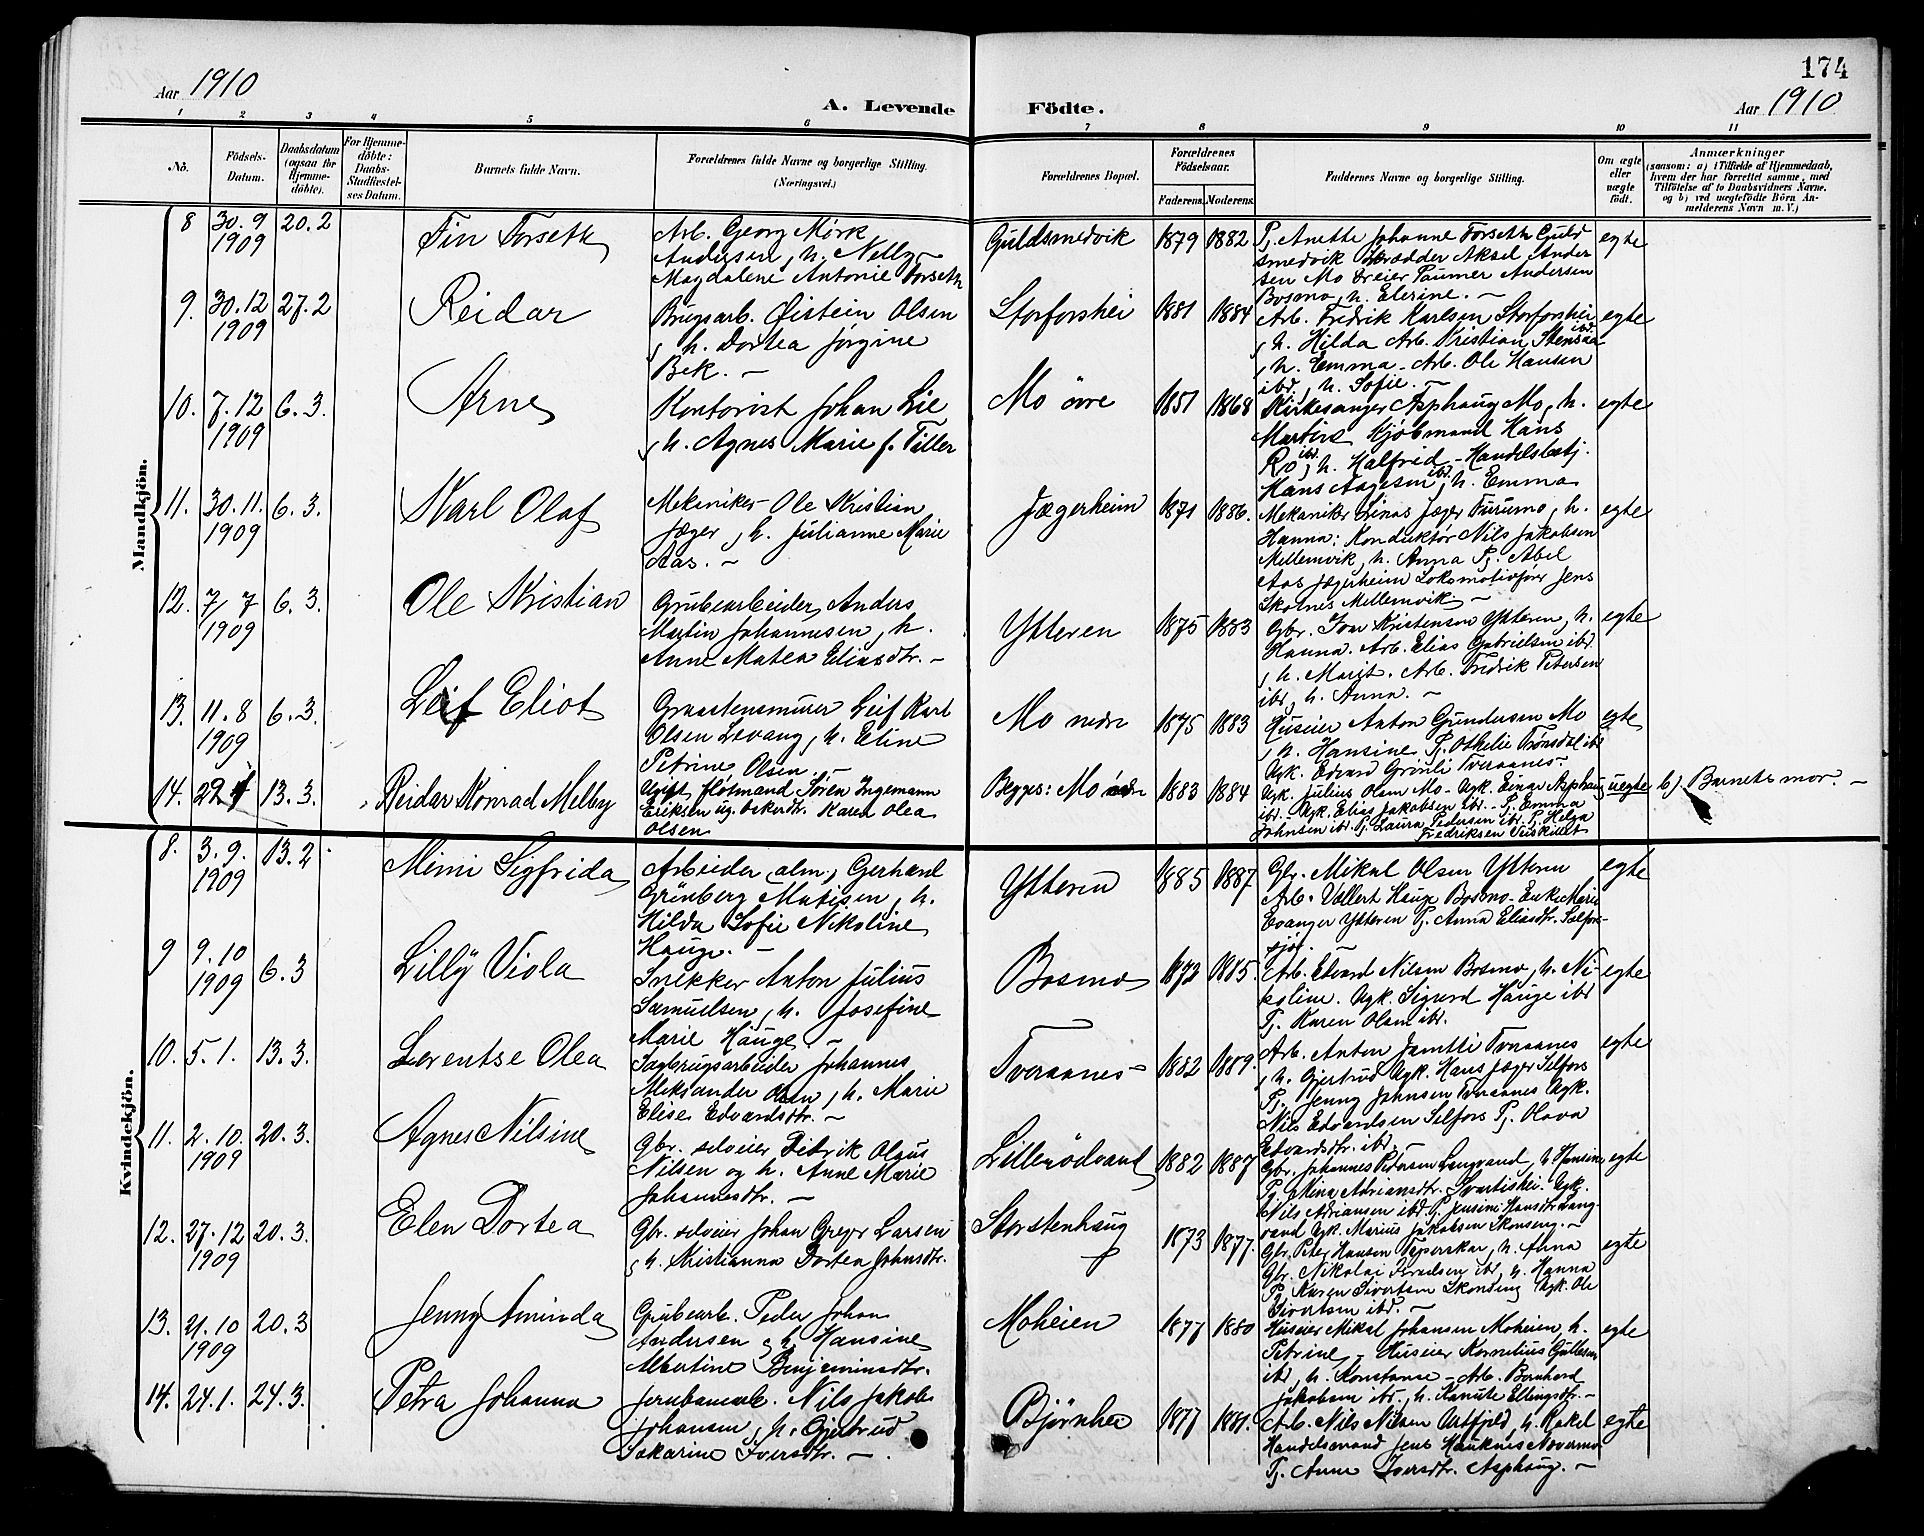 174
Aar 1910
Aar 1910
A. Levende Födte.
1 2 3 4 5 6 7 8 9 10 11
No.
Födsels-Datum.
Daabsdatum (ogsaa for Hjemme-döbte).
For Hjemme-döbte: Daabs-Stadfæstel-ses Datum.
Barnets fulde Navn.
Forældrenes fulde Navne og borgerlige Stilling.
(Næringsvei.)
Forældrenes Bopæl.
Forældrenes Födselsaar.
Faderens. Moderens.
Faddernes Navne og borgerlige Stilling.
Om ægte eller uægte födt.
Anmærkninger
(saasom: a) i Tilfælde af Hjemmedaab,
hvem der har forrettet samme, med
Tilföielse af to Daabsvidners Navne.
og b) ved uægtefödte Börn An-
melderens Navn m. V.)
Mandkjön.
8 30.9 1909 20.2 Fin Forseth
Arb. Georg Mörk
Andersen, h. Nelly
Magdalene Antonie Forseth
Guldsmedvik 1879 1882
Pj. Anette Johanne Forseth Guld
smedvik Skrædder Aksel Ander
sen Mo Dreier Paumer Andersen
Bosmo, h. Elerine. –
egte
9. 30.12 1909 27.2 Reidar
Brugsarb. Øistein Olsen
, h. Dortea Jørgine
Bek. –
Storforshei 1881 1884
Arb. Fredrik Karlsen Storforshei
, h. Hilda Arb. Kristian Stensaa ibd.
, h. Emma – Arb. Ole Hansen
ibd, h. Sofie. –
egte
10. 7.12 1909 6.3. Arne
Kontorist Johan Lie
, h. Agnes Marie f. Tiller
Mo övre 1851 1868
Kirkesanger Asphaug Mo, h.
Martine Kjöbmand Hans
Ro ibd, h. Halfrid – Handelsbetj.
Hans Aagesen ibd, h. Emma
egte
11. 30.11. 1909 6.3. Karl Olaf
Mekaniker Ole Kristian
Jæger, h. Julianne Marie
Aas. –
Jægerheim 1871 1886.
Mekaniker Linas Jæger Furumo, h.
Hanna: Konduktör Nils Jakobsen
Mellemvik, h. Anna Pj. Abel
Aas Jægerheim Lokomotivförer Jens
Skotnes Mellemvik –
egte
12. 7/7 1909 6.3. Ole Kristian
Grubearbeider Anders
Martin Johannesen, h.
Anne Matea Eliasdtr. –
Ytteren 1875 1883
Gbr. Tom Kristensen Ytteren, h.
Hanna. Arb. Elias Gabrielsen ibd.
, h. Marit. Arb. Fredrik Petersen
ibd, h. Anna. –
egte
13. 11.8 1909 6.3. Leif Eliot
Graastensmurer Leif Karl
Olsen Levang, h. Eline
Petrine Olsen. –
Mo nedre 1875 1883
Huseier Anton Gundersen Mo
, h. Hansine Pj. Othelie Trönsdal ibd
Ugk. Edvard Grönli Tveraanes –
egte
14. 22.1 13.3. Reidar Konrad Melby
Ugift flötmand Sören Ingemann
Eriksen ug. bekerdtr. Karen Olea
Olsen
Begges: Mo nedre 1883 1884
Ugk. Julius Olsen Mo – Ugk. Einar Asphaug
ibd. Ugk. Elias Jakobsen ibd. – Pj. Emma
Johnsen ibd. Pj. Laura Pedersen ibd. Pj. Helga
Fredriksen
uegte b). Barnets mor. –
Kvindekjön.
8. 3.9. 1909 13.2 Mimi Sigfrida
Arbeider (alm.) Gerhard
Grönberg Matisen, h.
Hilda Sofie Nikoline
Hauge. –
Ytteren 1885 1887
Gbr. Mikal Olsen Ytteren
Arb. Vollert Hauge Bosmo – Enke Marie
Evanger Ytteren Pj. Anna Eliasdtr. Selfors-
sjöen. –
egte
9 9.10 1909 6.3 Lilly Viola
Snekker Anton Julius
Samuelsen, h. Josefine
Marie Hauge. –
Bosmo 1872 1885.
Arb. Edvard Nilsen Bosmo, h. Ni-
koline. Ugk. Sigurd Hauge ibd
Pj. Karen Olsen ibd.
egte
10. 5.1. 13.3. Lorentse Olea
Sagbrugsarbeider Johannes
Aleksander Olsen, h. Marie
Elise Edvardsdtr. –
Tveraanes – 1882 1889.
Arb. Anton Jamtli Tveraanes
, h. Gjertrud Ugk. Hans Jæger Selfors
Pj. Jenny Johnsen Tveraanes Ugk.
Nils Edvardsen Selfors Pj. Olava
Edvardsdtr. ibd. –
egte
11. 2.10. 1909 20.3. Agnes Nilsine
Gbr. selveier Didrik Olaus
Nilsen og h. Anne Marie
Johannesdtr. –
Lillerödvand 1882 1887
Gbr. Johannes Pedersen Langvand, h. Hansine
Pj. Mina Adriansdtr. Svartishei. Ugk.
Nils Adriansen ibd. Pj. Jensine Hansdtr. Lang-
vand Ugk. Marius Jakobsen Skonseng. –
egte
12. 27.12 1909 20.3. Elen Dortea
Gbr. selveier Johan Greger Larsen
, h. Kristianna Dortea Johnsdtr.
Storstenhaug 1873 1877.
Gbr. Peter Hansen Tapeskar, h. Anna
Gbr. Nikolai ibd, h. Hanna
Pj. Karen Sivertsen Skonseng Ugk. Ole
Sivertsen ibd. –
egte
13. 21.10 1909 20.3 Jenny Aminda
Grubearb. Peder Johan
Andersen og h. Hansine
Albertine Benjaminsdtr.
Moheien 1877 1880
Huseier Mikal Johansen Moheien, h.
Petrine, – Huseier Kornelius Gullesen
ibd, h. Konstanse – Arb. Bernhard
Jakobsen ibd., h. Kanute Ellingsdtr. –
egte
14. 24.1. 24.3. Petra Johanna
Jernbanearb. Nils Jakob
Johansen, h. Gjertrud
Sakarine Iversdtr. –
Björnhei 1877 1881.
Arb. Nils Nilsen Urtfjeld, h. Rakel
Handelsmand Jens Hauknes Nævermo
Pj. Anne Iversdtr. Asphaug. –
egte